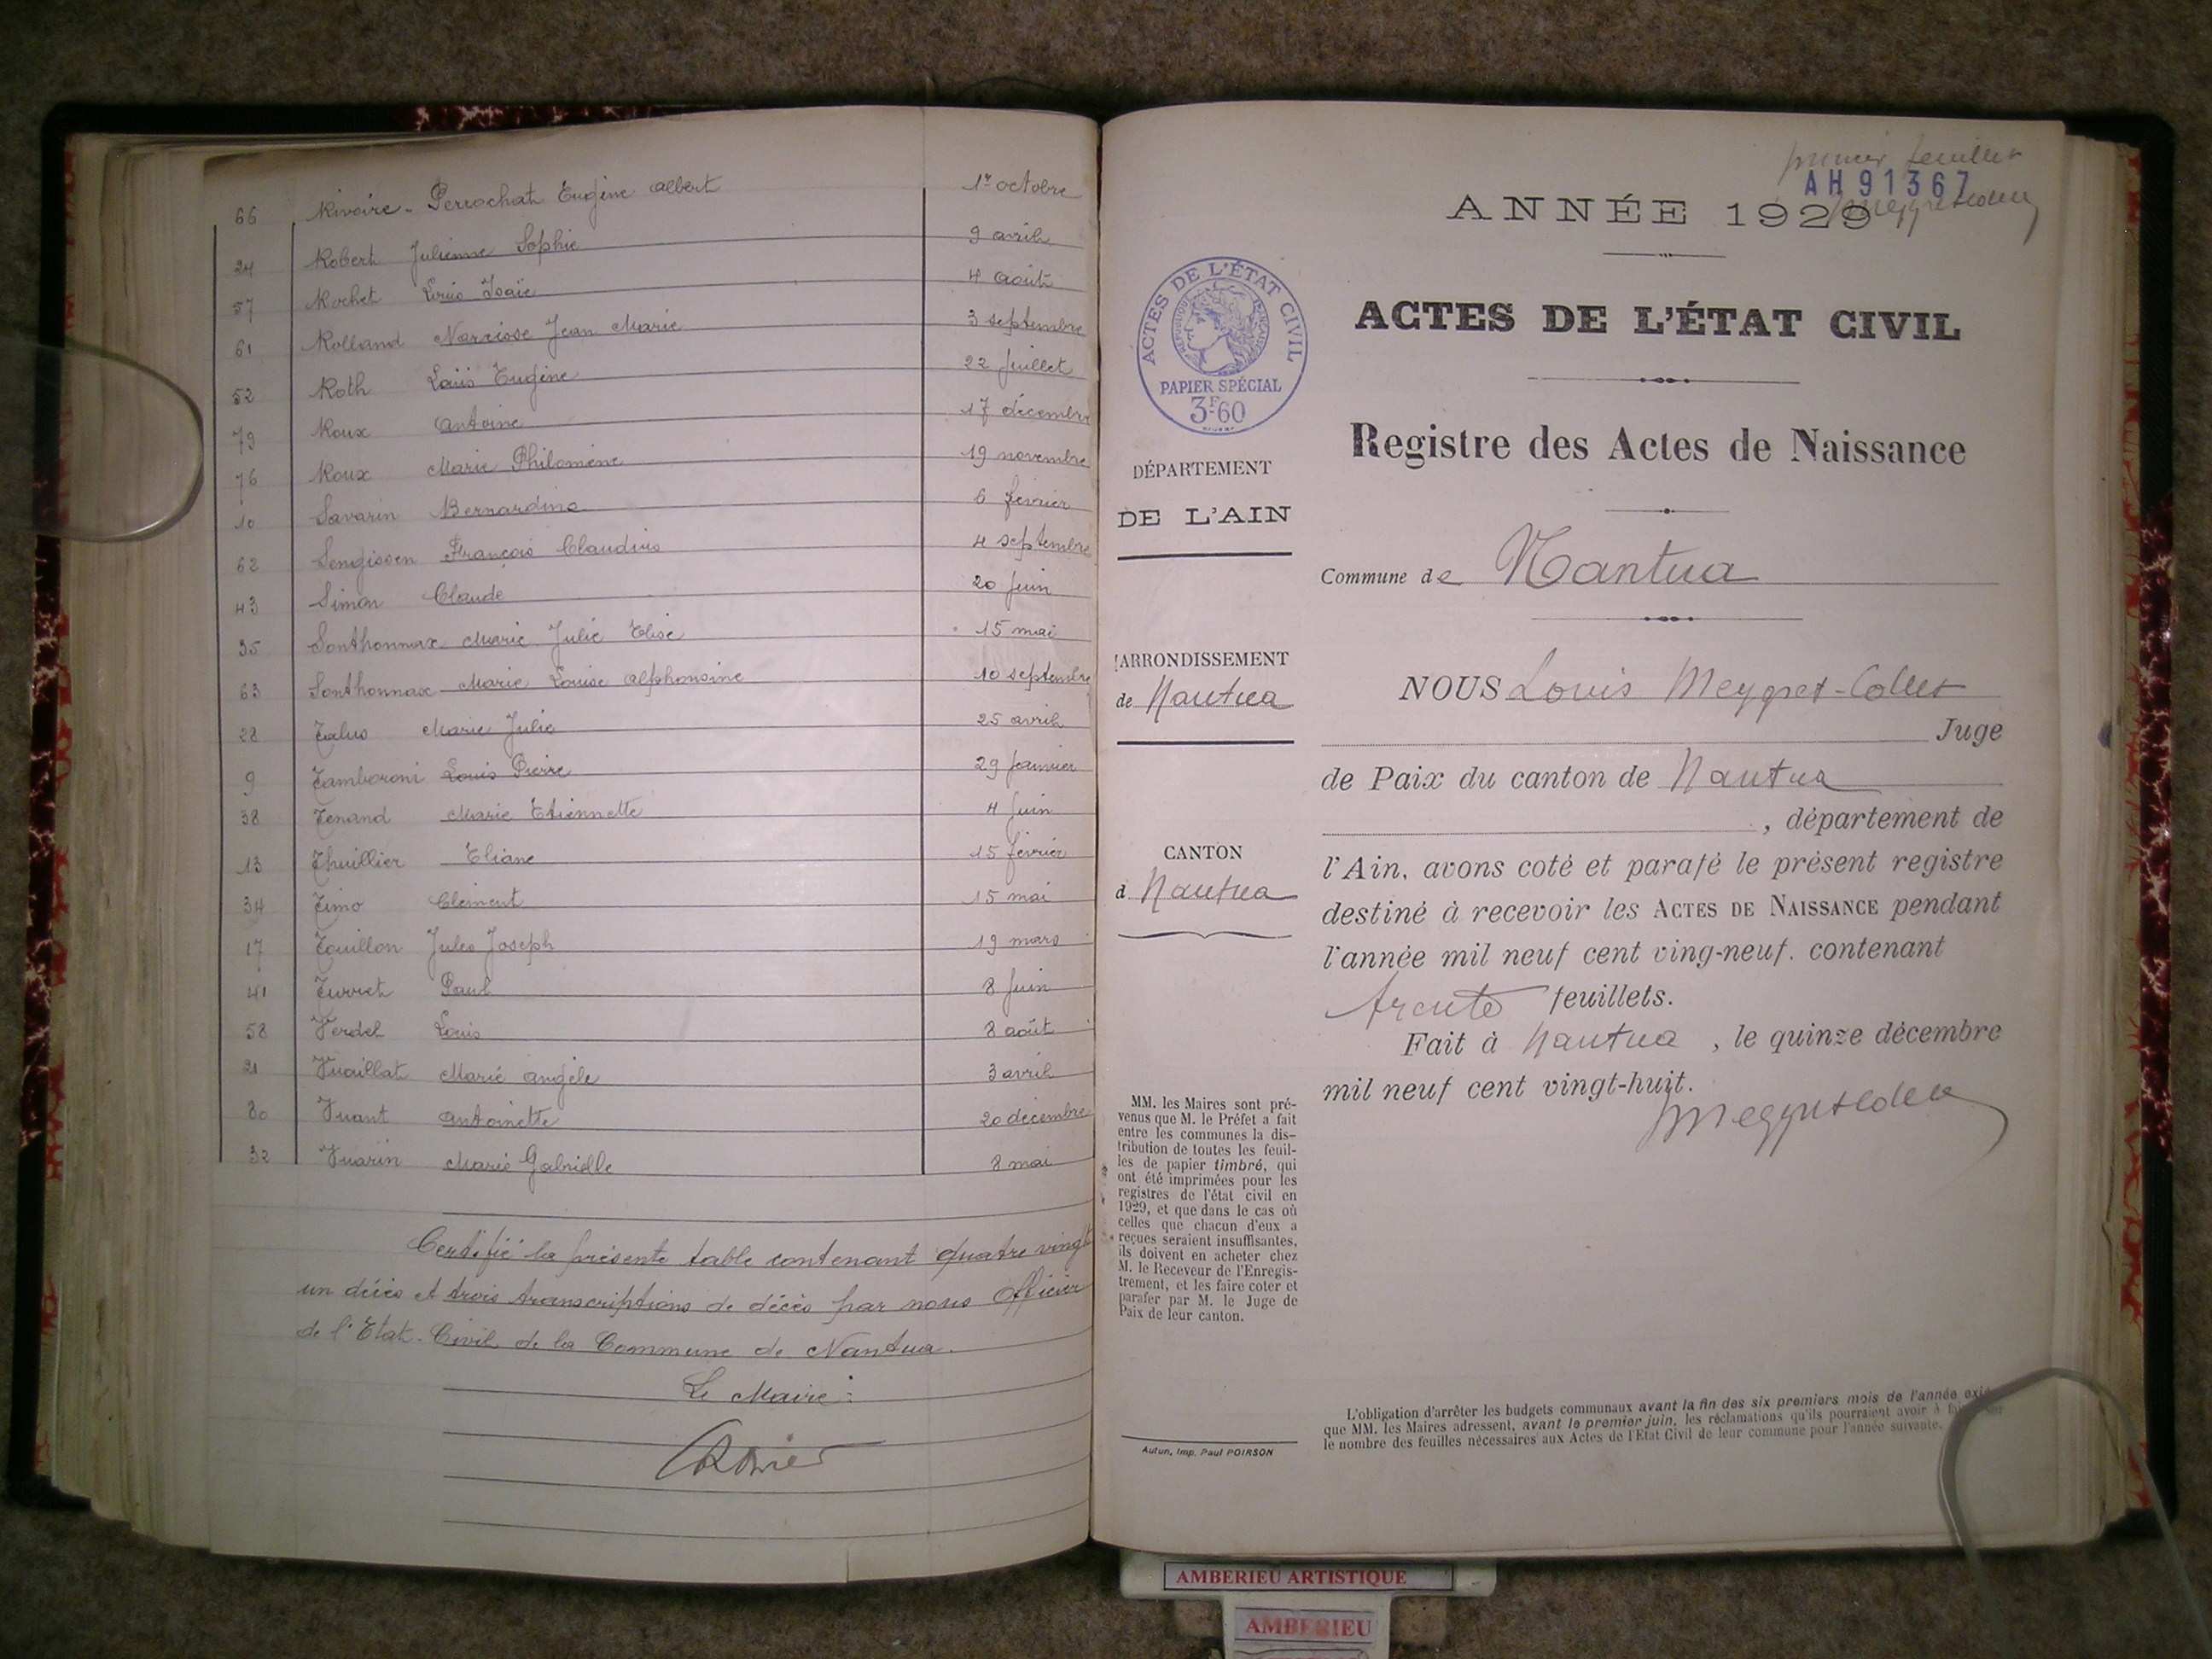 66 Rivoire-Perrochat Eugène Albert 1er octobre
24 Robert Julienne Sophie 9 avril
57 Rochet Louis Isaïe 4 août
61 Rolland Narcisse Jean Marie 3 septembre
52 Roth Louis Eugène 22 Juillet
79 Roux Antoine 17 décembre
76 Roux Marie Philomène 19 novembre
10 Savarin Bernardine 6 février
62 Sengissen François Claudius 4 septembre
43 Simon Claude 20 Juin
35 Sonthonnax Marie Julie Elise 15 mai
63 Sonthonnax Marie Louise Alphonsine 10 septembre
28 Talus Marie Julie 25 avril
9 Tamboroni Louis Pierre 29 Janvier
38 Tenand Marie Etiennette 4 Juin
13 Thuillier Eliane 15 février
34 Timo Clément 15 mai
17 Touillon Jules Joseph 19 mars
41 Turret Paul 8 Juin
58 Verdel Louis 8 août
21 Vuaillat Marie Angèle 3 avril
80 Vuant Antoinette 20 décembre
32 Vuarin Marie Gabrielle 8 mai
Certifié la présente table contenant quatre vingt
un décès et trois transcriptions de décès par nous Officier
de l'Etat-Civil de la Commune de Nantua.
Le Maire :
premier feuillet
AH 91367
ANNÉE 1929
ACTES DE L'ÉTAT CIVIL
RÉPUBLIQUE FRANÇAISE
PAPIER SPÉCIAL
3F.60
ACTES DE L'ÉTAT CIVIL
Registre des Actes de Naissance
DÉPARTEMENT
DE L'AIN
Commune de Nantua
ARRONDISSEMENT
de Nantua
CANTON
d Nantua
NOUS Louis Meygret-Collet
Juge
de Paix du canton de Nantua
, département de
l'Ain, avons coté et parafé le présent registre
destiné à recevoir les ACTES DE NAISSANCE pendant
l'année mil neuf cent ving-neuf. contenant
trente feuillets.
Fait à Nantua, le quinze décembre
mil neuf cent vingt-huit.
MM. les Maires sont pré-
venus que M. le Préfet a fait
entre les communes la dis-
tribution de toutes les feuil-
les de papier timbré, qui
ont été imprimées pour les
registres de l'état civil en
1929, et que dans le cas où
celles que chacun d'eux a
reçues seraient insuffisantes,
ils doivent en acheter chez
M. le Receveur de l'Enregis-
trement, et les faire coter et
parafer par M. le Juge de
Paix de leur canton.
Autun, Imp. Paul POIRSON
L'obligation d'arrêter les budgets communaux avant la fin des six premiers mois de l'année
que MM. les Maires adressent, avant le premier juin, les réclamations qu'ils pourraient avoir à
le nombre des feuilles nécessaires aux Actes de l'Etat Civil de leur commune pour l'année suivante.
AMBERIEU ARTISTIQUE
AMBERIEU